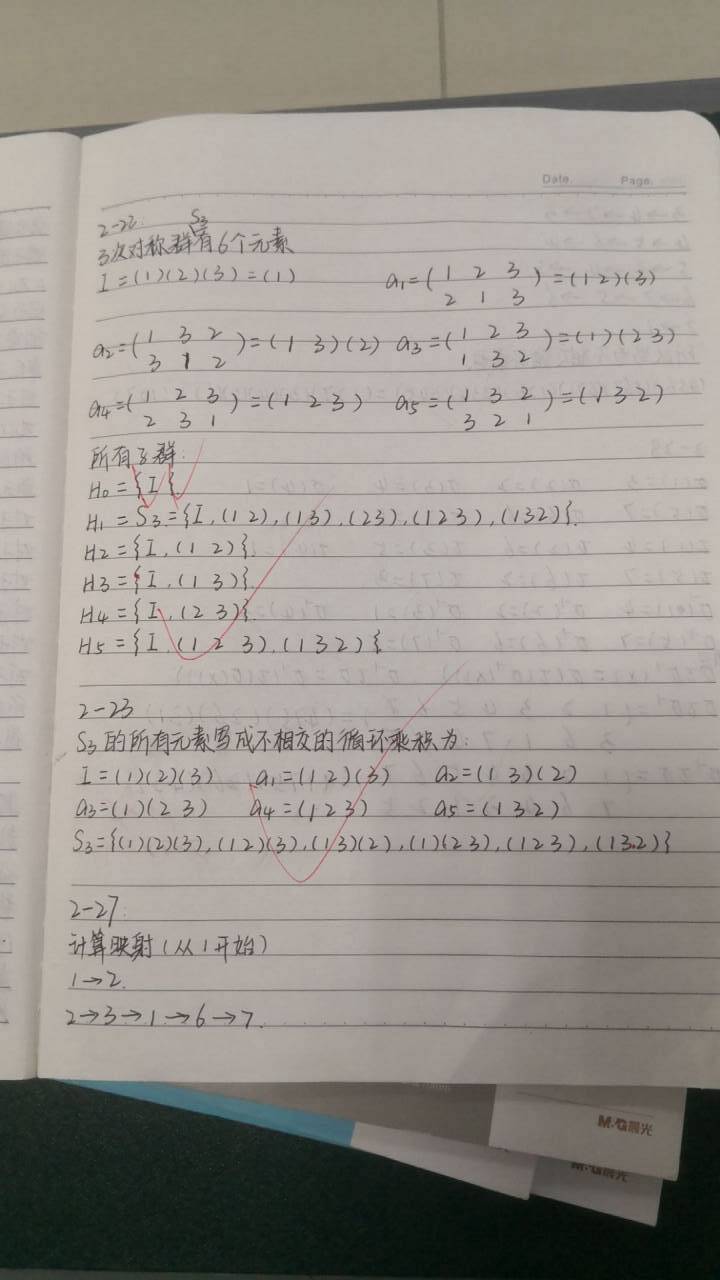 Date. Page.
2-22: S3
3次对称群有6个元素
I=(1)(2)(3)=(1) a1=(1 2 3
2 1 3)=(12)(3)
a2=(1 3 2
3 1 2)=(1 3)(2) a3=(1 2 3
1 3 2)=(1)(23)
a4=(1 2 3
2 3 1)=(1 2 3) a5=(1 3 2
3 2 1)=(132)
所有子群:
H0={I}
H1=S3={I,(12),(13),(23),(123),(132)}.
H2={I,(1 2)}.
H3={I,(1 3)}.
H4={I,(2 3)}.
H5={I,(1 2 3),(132)}
2-23
S3的所有元素写成不相交的循环乘积为:
I=(1)(2)(3) a1=(12)(3) a2=(1 3)(2)
a3=(1)(2 3) a4=(123) a5=(132)
S3={(1)(2)(3),(12)(3),(13)(2),(1)(23),(123),(132)}
2-27:
计算映射(从1开始)
1→2.
2→3→1→6→7.
M&G晨光
M&G晨光